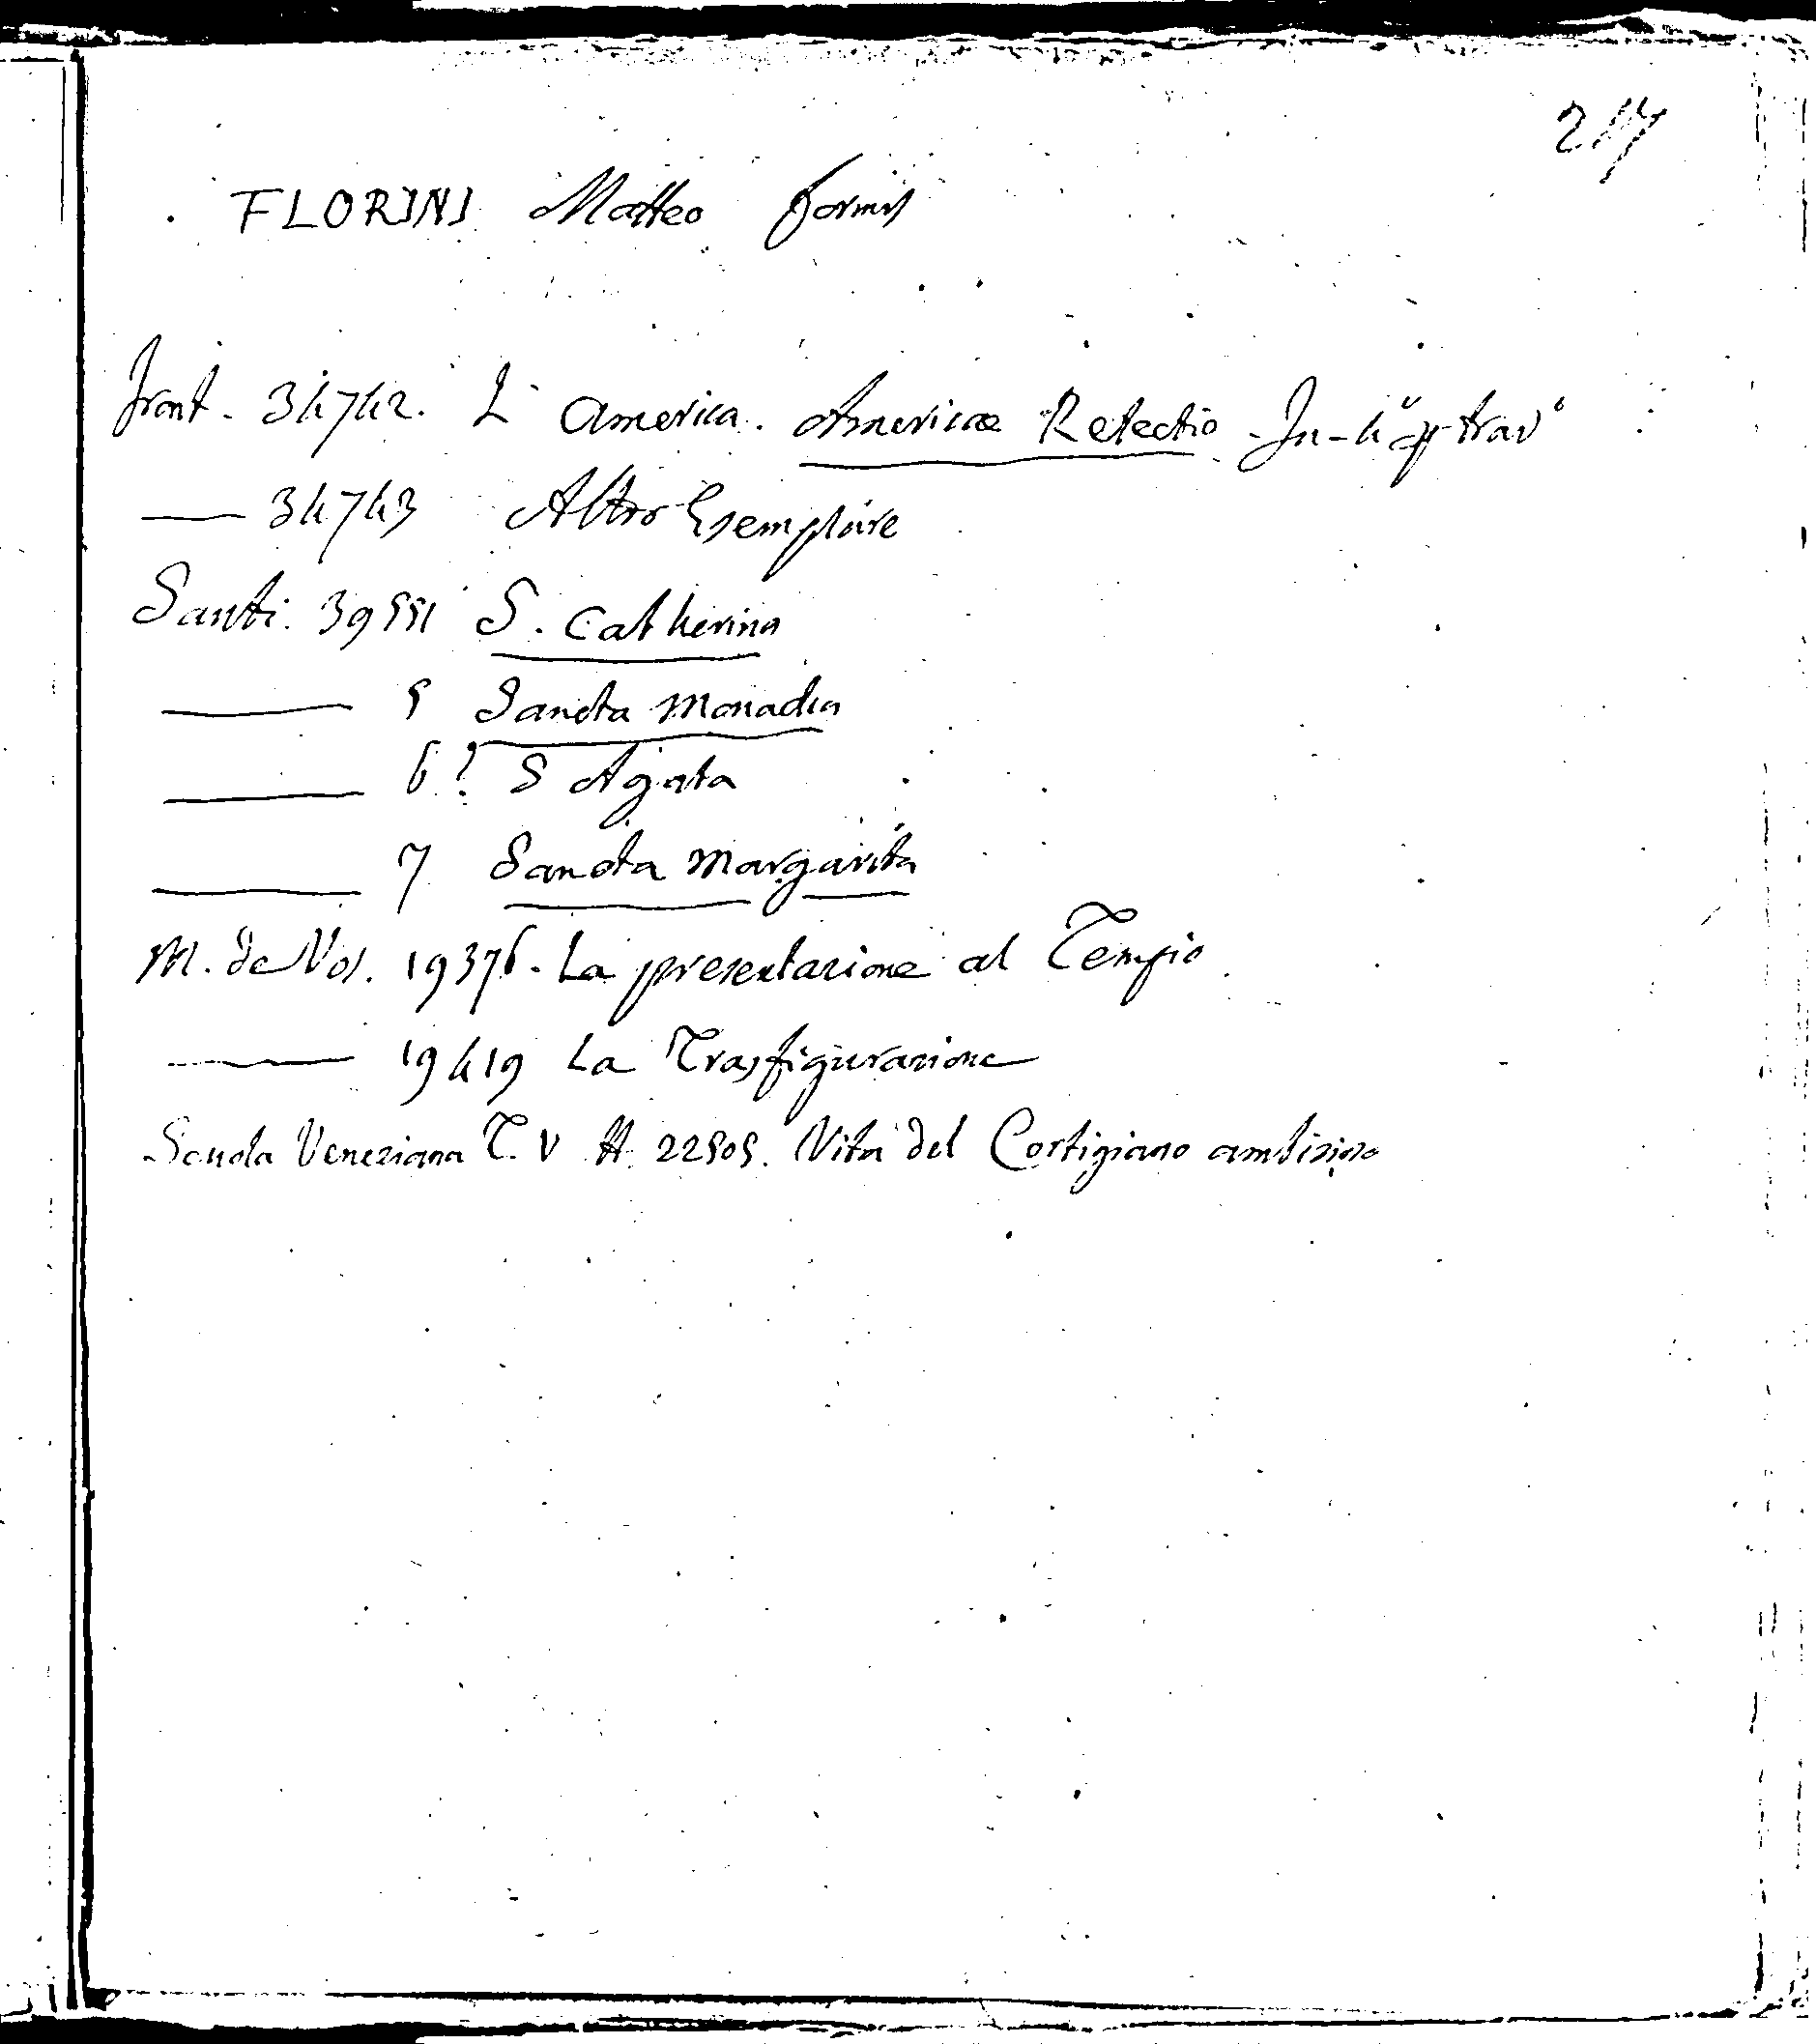 217
FLORINI Matteo formis
Front. 34742. L'America. Americæ Retectio - In-4° p. trav°
— 34743 Altro Esemplare
Santi. 39551 S. Catherina
— 5 Sancta Monadia
— 6? S Agata
— 7 Sancta Margarita
M. de Vos. 19376. La presentazione al Tempio
— 19419 La Trasfigurazione
Scuola Veneziana T. V H. 22505. Vita del Cortigiano ambizioso